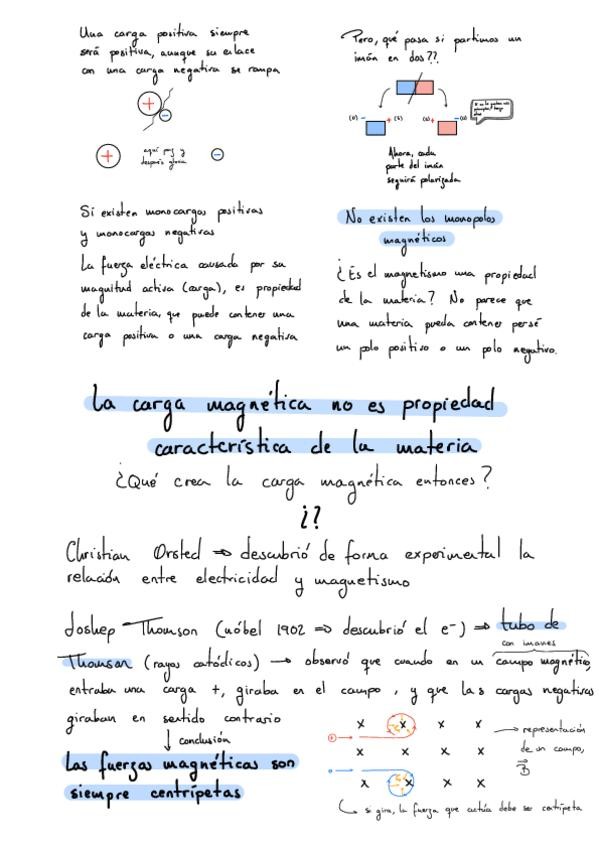 Una carga positiva siempre
será positiva, aunque su enlace
con una carga negativa se rompa
+
-
+
aquí paz y
después gloria
-
Si existen monocargas positivas
y monocargas negativas
La fuerza eléctrica causada por su
magnitud activa (carga), es propiedad
de la materia, que puede contener una
carga positiva o una carga negativa
Pero, qué pasa si partimos un
imán en dos??
- + (S)
+ -
Ahora, cada
parte del imán
seguirá polarizada
No existen los monopolos
magnéticos
¿Es el magnetismo una propiedad
de la materia? No parece que
una materia pueda contener persé
un polo positivo o un polo negativo.
La carga magnética no es propiedad
característica de la materia
¿Qué crea la carga magnética entonces?
¿?
Christian Orsted ⇒ descubrió de forma experimental la
relación entre electricidad y magnetismo
Joshep Thomson (nóbel 1902 ⇒ descubrió el e⁻) ⇒ tubo de
con imanes
Thomson (rayos catódicos) → observó que cuando en un campo magnético,
entraba una carga +, giraba en el campo, y que las cargas negativas
giraban en sentido contrario
↓ conclusión
Las fuerzas magnéticas son
siempre centrípetas
x x x x
x x x x
x x x x
→ representación
de un campo,
B
si gira, la fuerza que actúa debe ser centrípeta